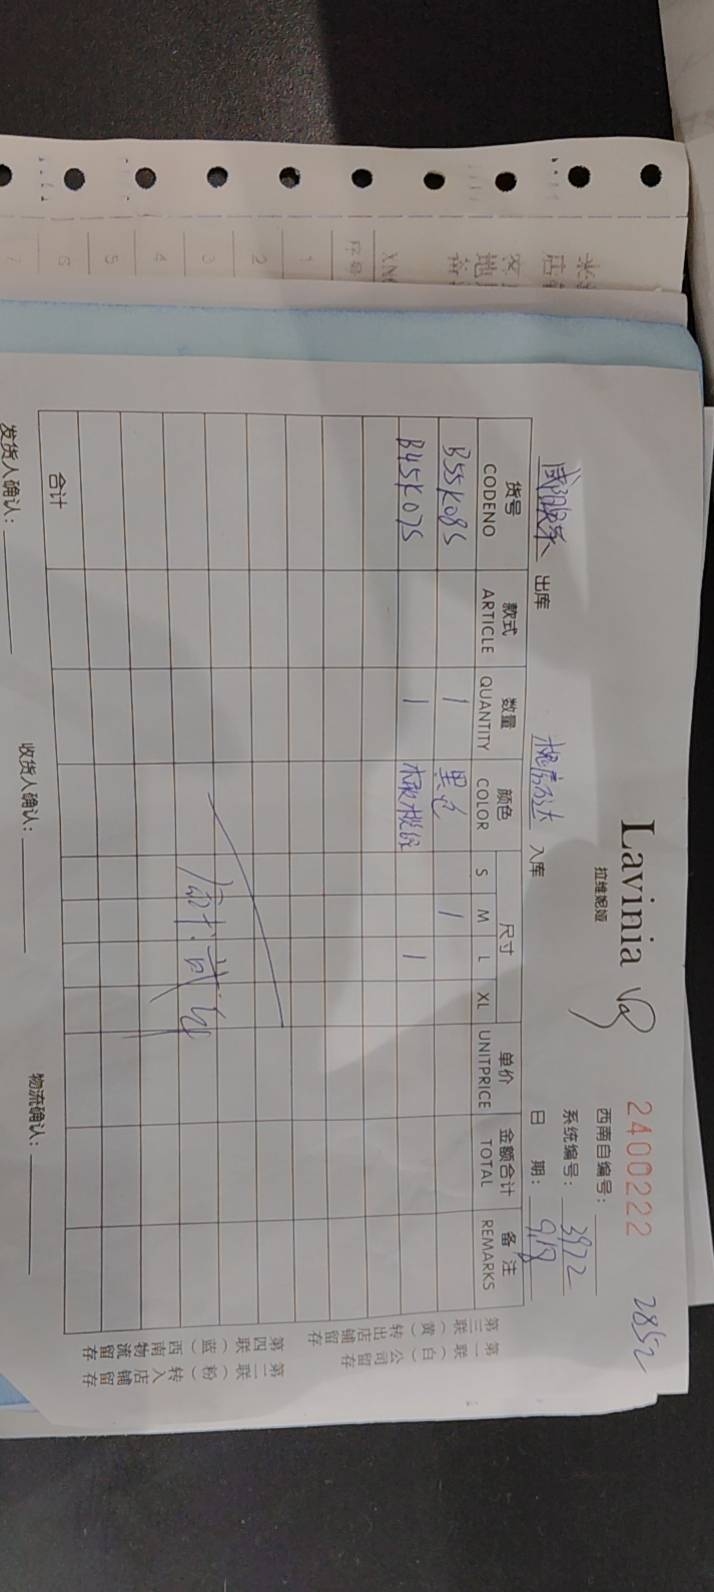 Lavinia
拉维妮娅
2400222
2852
西南自编号:
系统编号: 3972
出库 入库 日 期: 9.18
货号 款式 数量 颜色 尺寸 单价 金额合计 备注
CODENO ARTICLE QUANTITY COLOR S M L XL UNITPRICE TOTAL REMARKS
B55K085 1 黑色 1
B45K075 1 1
合计
发货人确认: 收货人确认: 物流确认:
第一联（白）公司留存
第二联（粉）转入店铺留存
第三联（黄）转出店铺留存
第四联（蓝）西南物流留存
序号
1
2
3
4
5
6
7